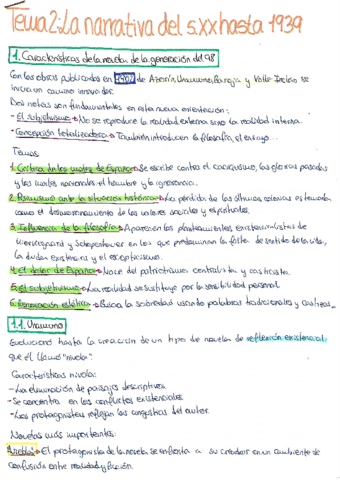 Tema 2: La narrativa del s.xx hasta 1939
1. Características de la novela de la generación del 98
Con las obras publicadas en 1902 de Azorín, Unamuno, Baroja y Valle Inclán se
inicia un camino innovador.
Dos notas son fundamentales en esta nueva orientación:
- El subjetivismo → No se reproduce la realidad externa sino la realidad interna.
- Concepción totalizadora → También introducen la filosofía, el ensayo...
Temas:
1. Crítica de los males de España → Se escribe contra el caciquismo, las glorias pasadas
y los males nacionales: el hambre y la ignorancia.
2. Pesimismo ante la situación histórica → La pérdida de las últimas colonias es tomada
como el desmoronamiento de los valores sociales y espirituales.
3. Influencia de la filosofía → Aparecen los planteamientos existencialistas de
Kierkegaard y Schopenhauer en los que predominan la falta de sentido de la vida,
la duda existencial y el escepticismo.
4. El dolor de España → Nace del patriotismo centralista y casticista.
5. El subjetivismo → La realidad se sustituye por la sensibilidad personal.
6. Renovación estética → Busca la sobriedad usando palabras tradicionales y castizas.
1.1. Unamuno
Evolucionó hasta la creación de un tipo de novelas de reflexión existencial
que él llamó "nivola".
Características nivola:
- La eliminación de paisajes descriptivos
- Se concentra en los conflictos existenciales
- Los protagonistas reflejan las angustias del autor.
Novelas más importantes:
"Niebla" → El protagonista de la novela se enfrenta a su creador en un ambiente de
confusión entre realidad y ficción.